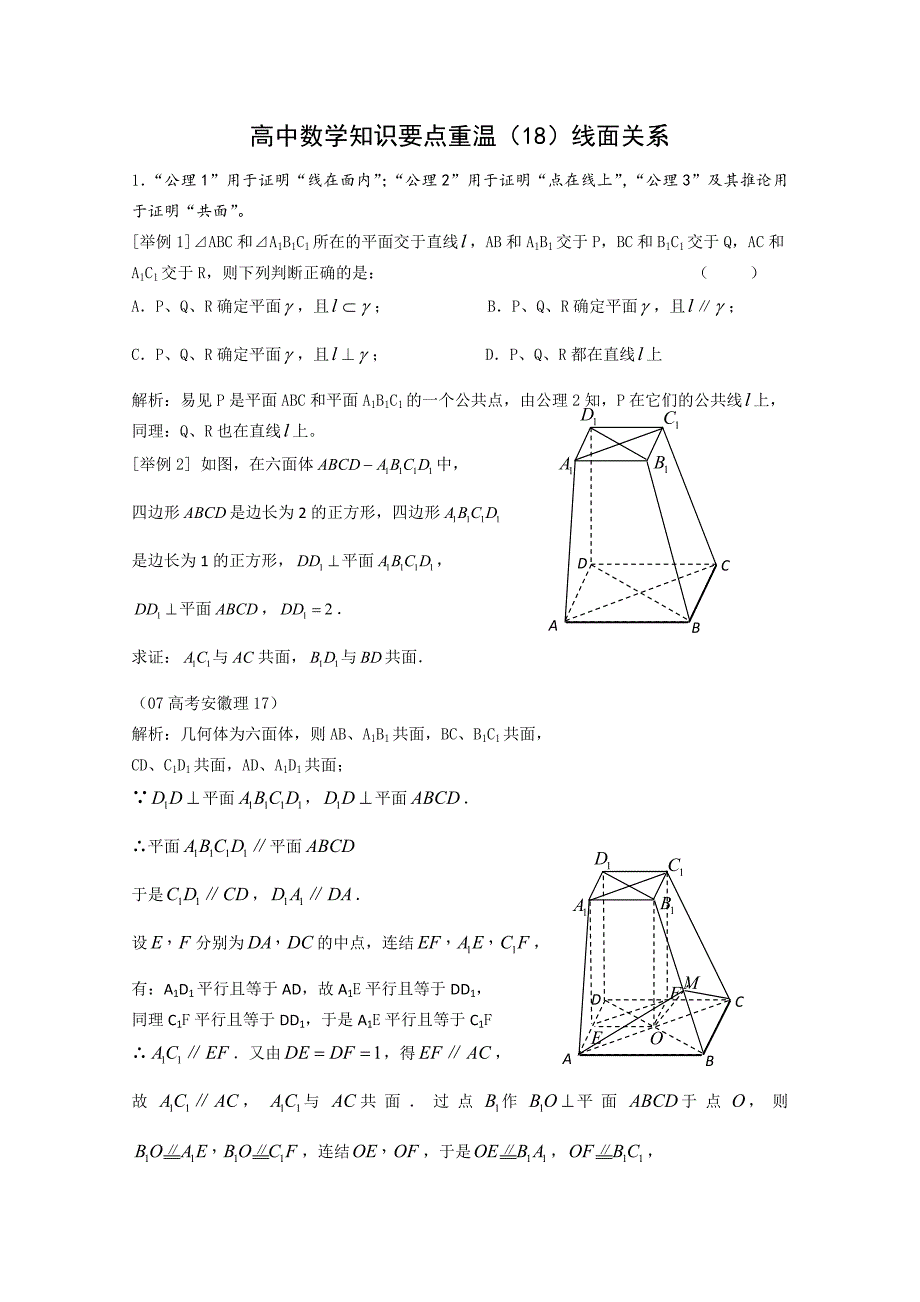 高中数学知识要点重温（18）线面关系
1．“公理1”用于证明“线在面内”；“公理2”用于证明“点在线上”，“公理3”及其推论用
于证明“共面”。
[举例1]⊿ABC和⊿A₁B₁C₁所在的平面交于直线l，AB和A₁B₁交于P，BC和B₁C₁交于Q，AC和
A₁C₁交于R，则下列判断正确的是： （ ）
A．P、Q、R确定平面γ，且l⊂γ； B．P、Q、R确定平面γ，且l∥γ；
C．P、Q、R确定平面γ，且l⊥γ； D．P、Q、R都在直线l上
解析：易见P是平面ABC和平面A₁B₁C₁的一个公共点，由公理2知，P在它们的公共线l上，
同理：Q、R也在直线l上。
[举例2] 如图，在六面体ABCD−A₁B₁C₁D₁中，
四边形ABCD是边长为2的正方形，四边形A₁B₁C₁D₁
是边长为1的正方形，DD₁⊥平面A₁B₁C₁D₁，
DD₁⊥平面ABCD，DD₁=2．
求证：A₁C₁与AC共面，B₁D₁与BD共面．
D₁ C₁
A₁ B₁
D C
A B
（07高考安徽理17）
解析：几何体为六面体，则AB、A₁B₁共面，BC、B₁C₁共面，
CD、C₁D₁共面，AD、A₁D₁共面；
∵D₁D⊥平面A₁B₁C₁D₁，D₁D⊥平面ABCD．
∴平面A₁B₁C₁D₁∥平面ABCD
于是C₁D₁∥CD，D₁A₁∥DA．
设E，F分别为DA，DC的中点，连结EF，A₁E，C₁F，
有：A₁D₁平行且等于AD，故A₁E平行且等于DD₁，
同理C₁F平行且等于DD₁，于是A₁E平行且等于C₁F
∴A₁C₁∥EF．又由DE=DF=1，得EF∥AC，
D₁ C₁
A₁ B₁
M
D F C
E O
A B
故A₁C₁∥AC，A₁C₁与AC共面．过点B₁作B₁O⊥平面ABCD于点O，则
B₁O∥＝A₁E，B₁O∥＝C₁F，连结OE，OF，于是OE∥＝B₁A₁，OF∥＝B₁C₁，